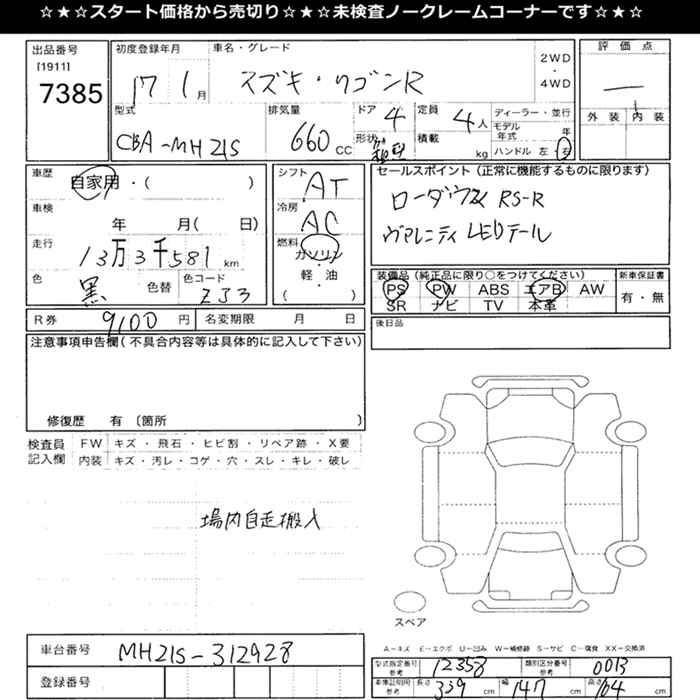 ☆★☆スタート価格から売切り☆★☆未検査ノークレームコーナーです☆★☆
出品番号
[1911]
7385
初度登録年月
17 1月
車名・グレード
スズキ・ワゴンR
2WD
・
4WD
評価点
外装 内装
型式
CBA-MH21S
排気量
660 CC
ドア 4
形状
定員 4人
積載 kg
ディーラー・並行
モデル年式 年
ハンドル 左・右
車歴
自家用・( )
車検
年 月( 日)
走行
13万3千581 km
色
黒 色替
色コード
ZJ3
シフト
AT
冷房
AC
燃料
ガソリン
・
軽・油
( )
セールスポイント(正常に機能するものに限ります)
ローダウン RS-R
ヴァレンティ LEDテール
装備品(純正品に限り○をつけてください)
PS PW ABS エアB AW
SR ナビ TV 本革
新車保証書
有・無
R券 9100 円
名変期限 月 日
後日品
注意事項申告欄(不具合内容等は具体的に記入して下さい)
修復歴 有〔箇所 〕
検査員記入欄
FW キズ・飛石・ヒビ割・リペア跡・X要
内装 キズ・汚レ・コゲ・穴・スレ・キレ・破レ
場内自走搬入
スペア
A−キズ E−エクボ U−凹み W−補修跡 S−サビ C−腐食 XX−交換済
車台番号 MH21S-312928
登録番号
型式指定番号 参考 12358
類別区分番号 参考 0013
車検証明用 参考 長さ 339 cm 幅 147 cm 高さ 164 cm